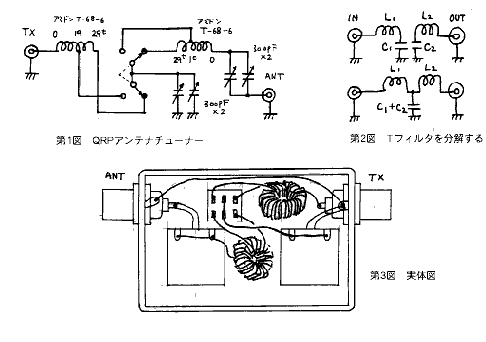 アミドン T-68-6
TX
0 19 29t
アミドン
T-68-6
29t 1t 0
300pF
×2
ANT
300pF
×2
第1図 QRPアンテナチューナー
IN L1 L2 OUT
C1 C2
L1 L2
C1+C2
第2図 Tフィルタを分解する
ANT
TX
第3図 実体図